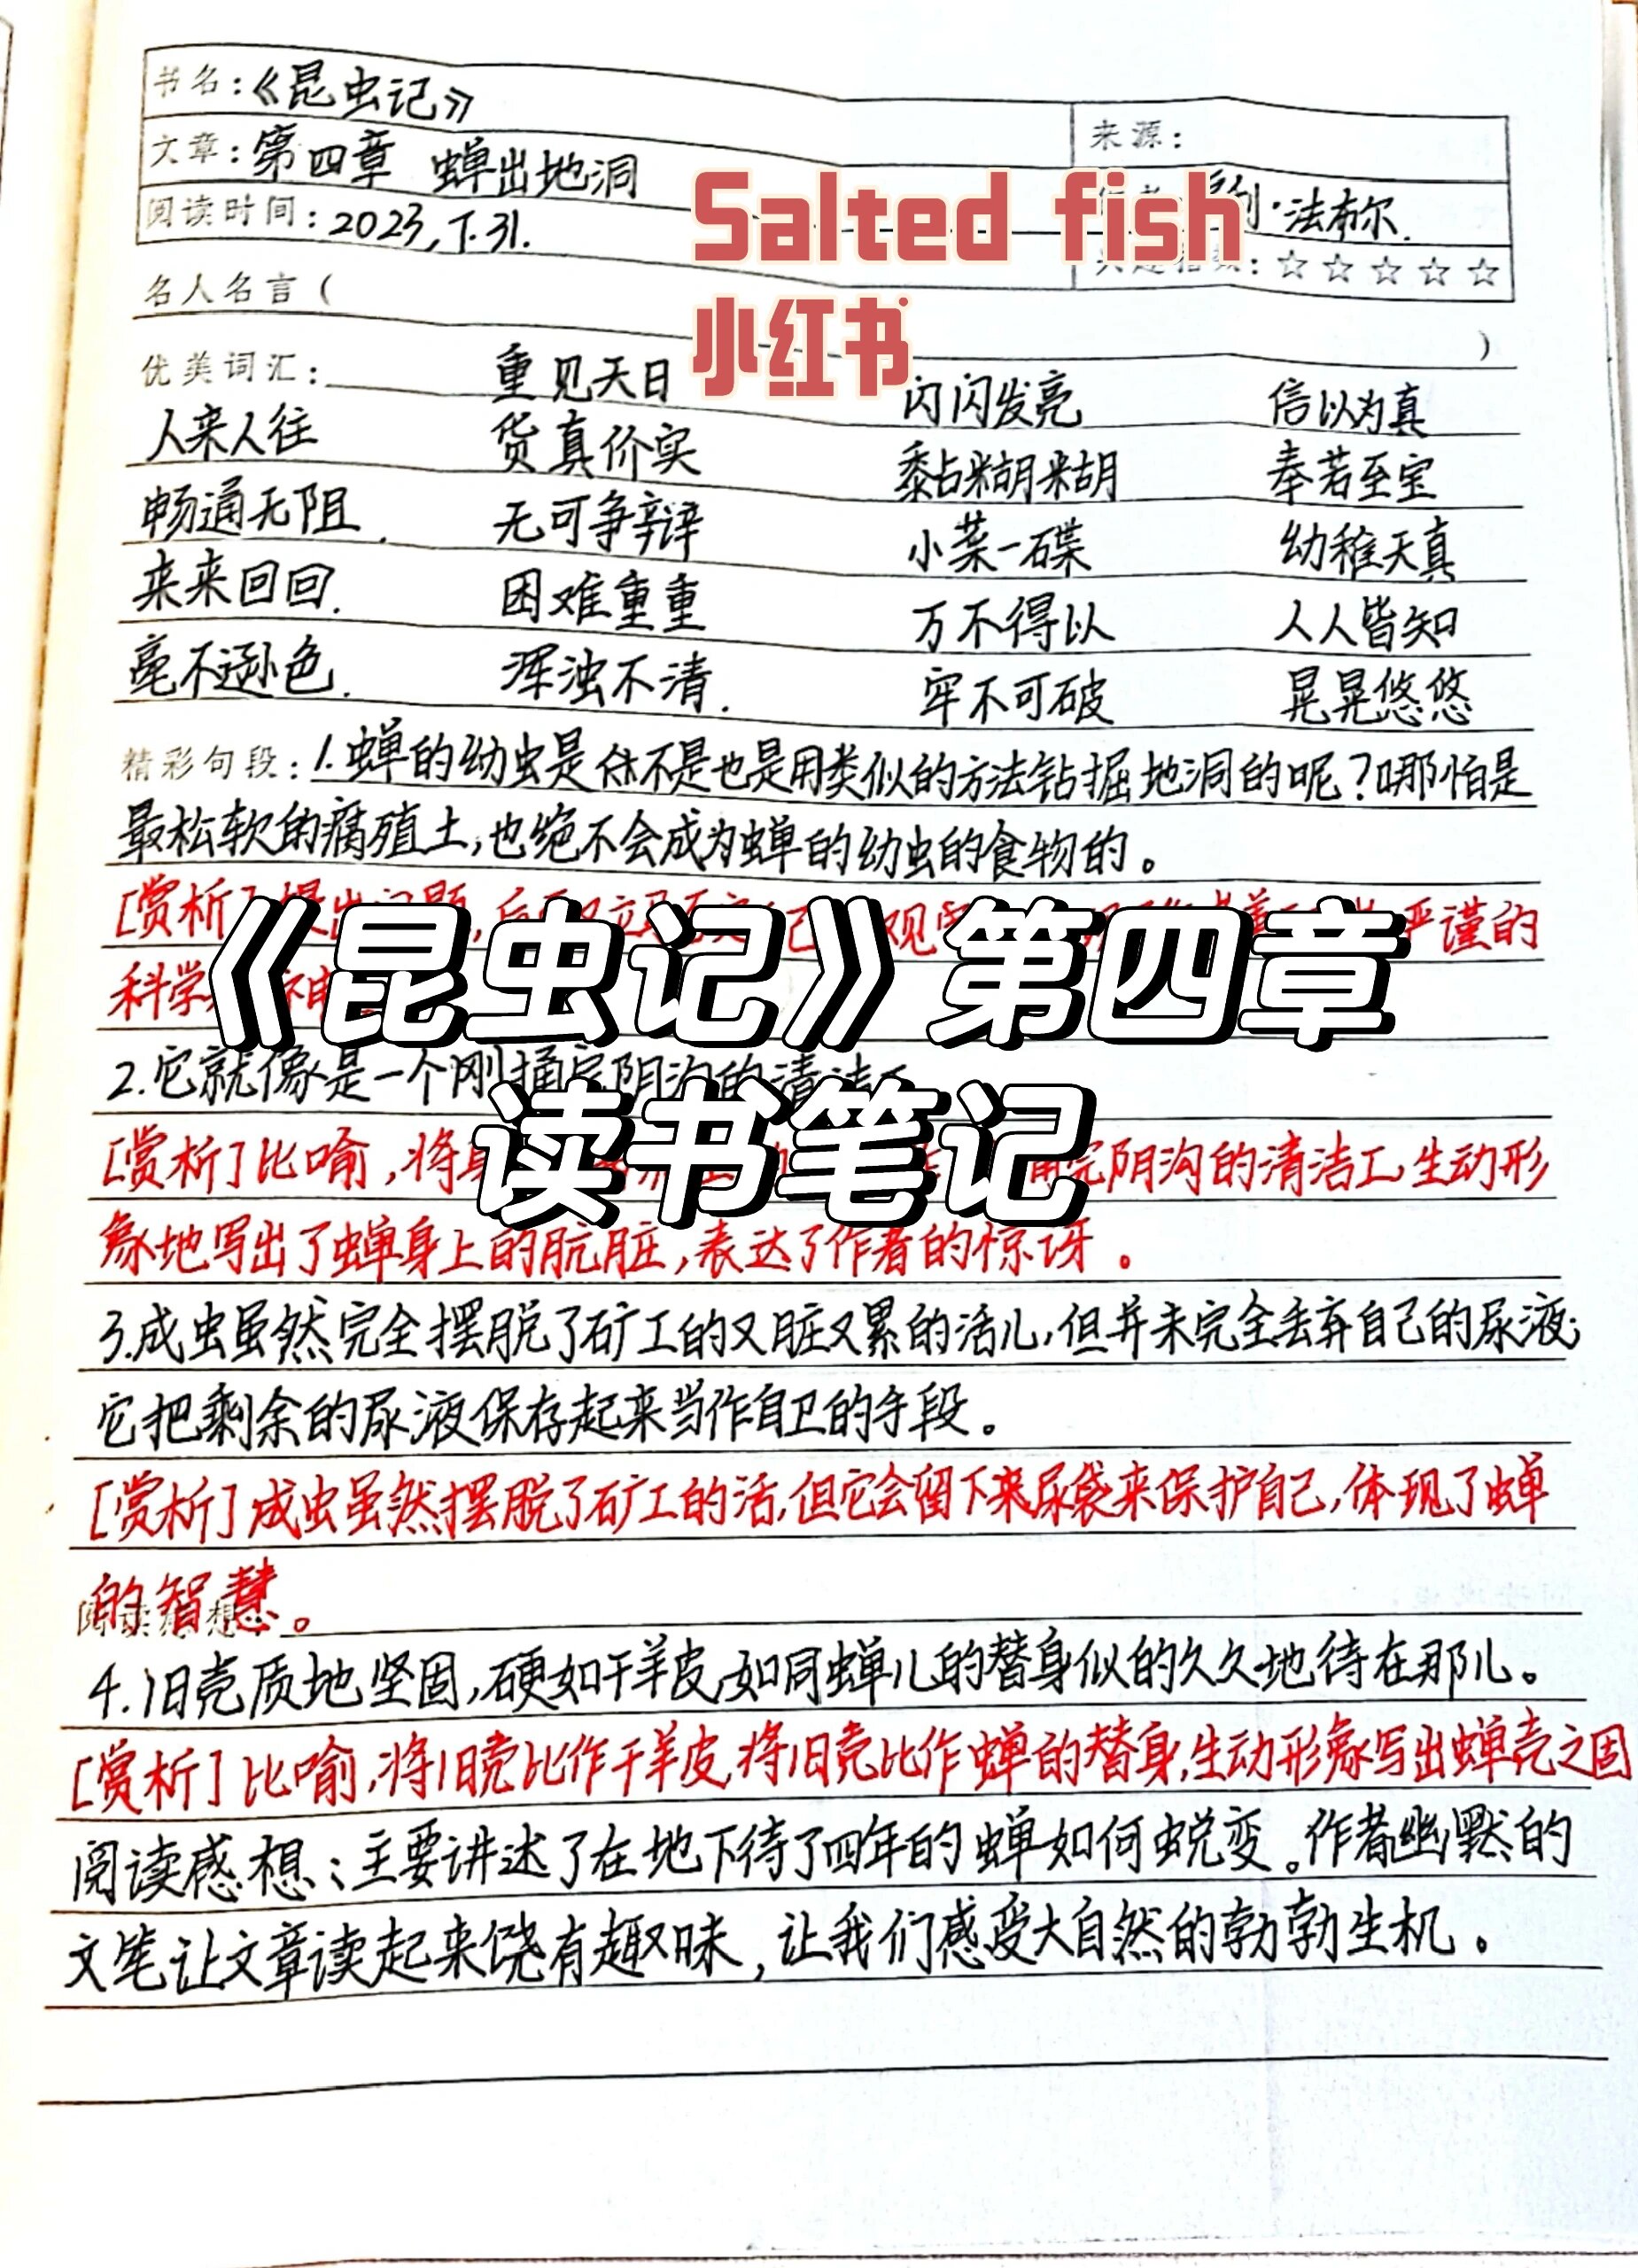 书名:《昆虫记》
来源:
文章:第四章 蝉出地洞
Salted fish
·法布尔.
阅读时间:2023,7.31.
☆☆☆☆☆
小红书
名人名言( )
优美词汇: 重见天日 闪闪发亮 信以为真
人来人往 货真价实 黏糊糊 奉若至宝
畅通无阻. 无可争辩 小菜一碟 幼稚天真
来来回回. 困难重重 万不得以 人人皆知
毫不逊色. 浑浊不清. 牢不可破 晃晃悠悠
精彩句段:1.蝉的幼虫是 不是也是用类似的方法钻掘地洞的呢?哪怕是
最松软的腐殖土,也绝不会成为蝉的幼虫的食物的。
[赏析]提出问题, 严谨的
科学
《昆虫记》第四章
2.它就像是一个刚捅完阴沟的清洁工
读书笔记
[赏析]比喻,将 完阴沟的清洁工,生动形
象地写出了蝉身上的肮脏,表达了作者的惊讶。
3.成虫虽然完全摆脱了矿工的又脏又累的活儿,但并未完全丢弃自己的尿液;
它把剩余的尿液保存起来当作自卫的手段。
[赏析]成虫虽然摆脱了矿工的活,但它会留下来尿袋来保护自己,体现了蝉
的智慧。
4.旧壳质地坚固,硬如干羊皮,如同蝉儿的替身似的久久地待在那儿。
[赏析]比喻,将旧壳比作干羊皮,将旧壳比作蝉的替身,生动形象写出蝉壳之固
阅读感想:主要讲述了在地下待了四年的蝉如何蜕变。作者幽默的
文笔让文章读起来饶有趣味,让我们感受大自然的勃勃生机。